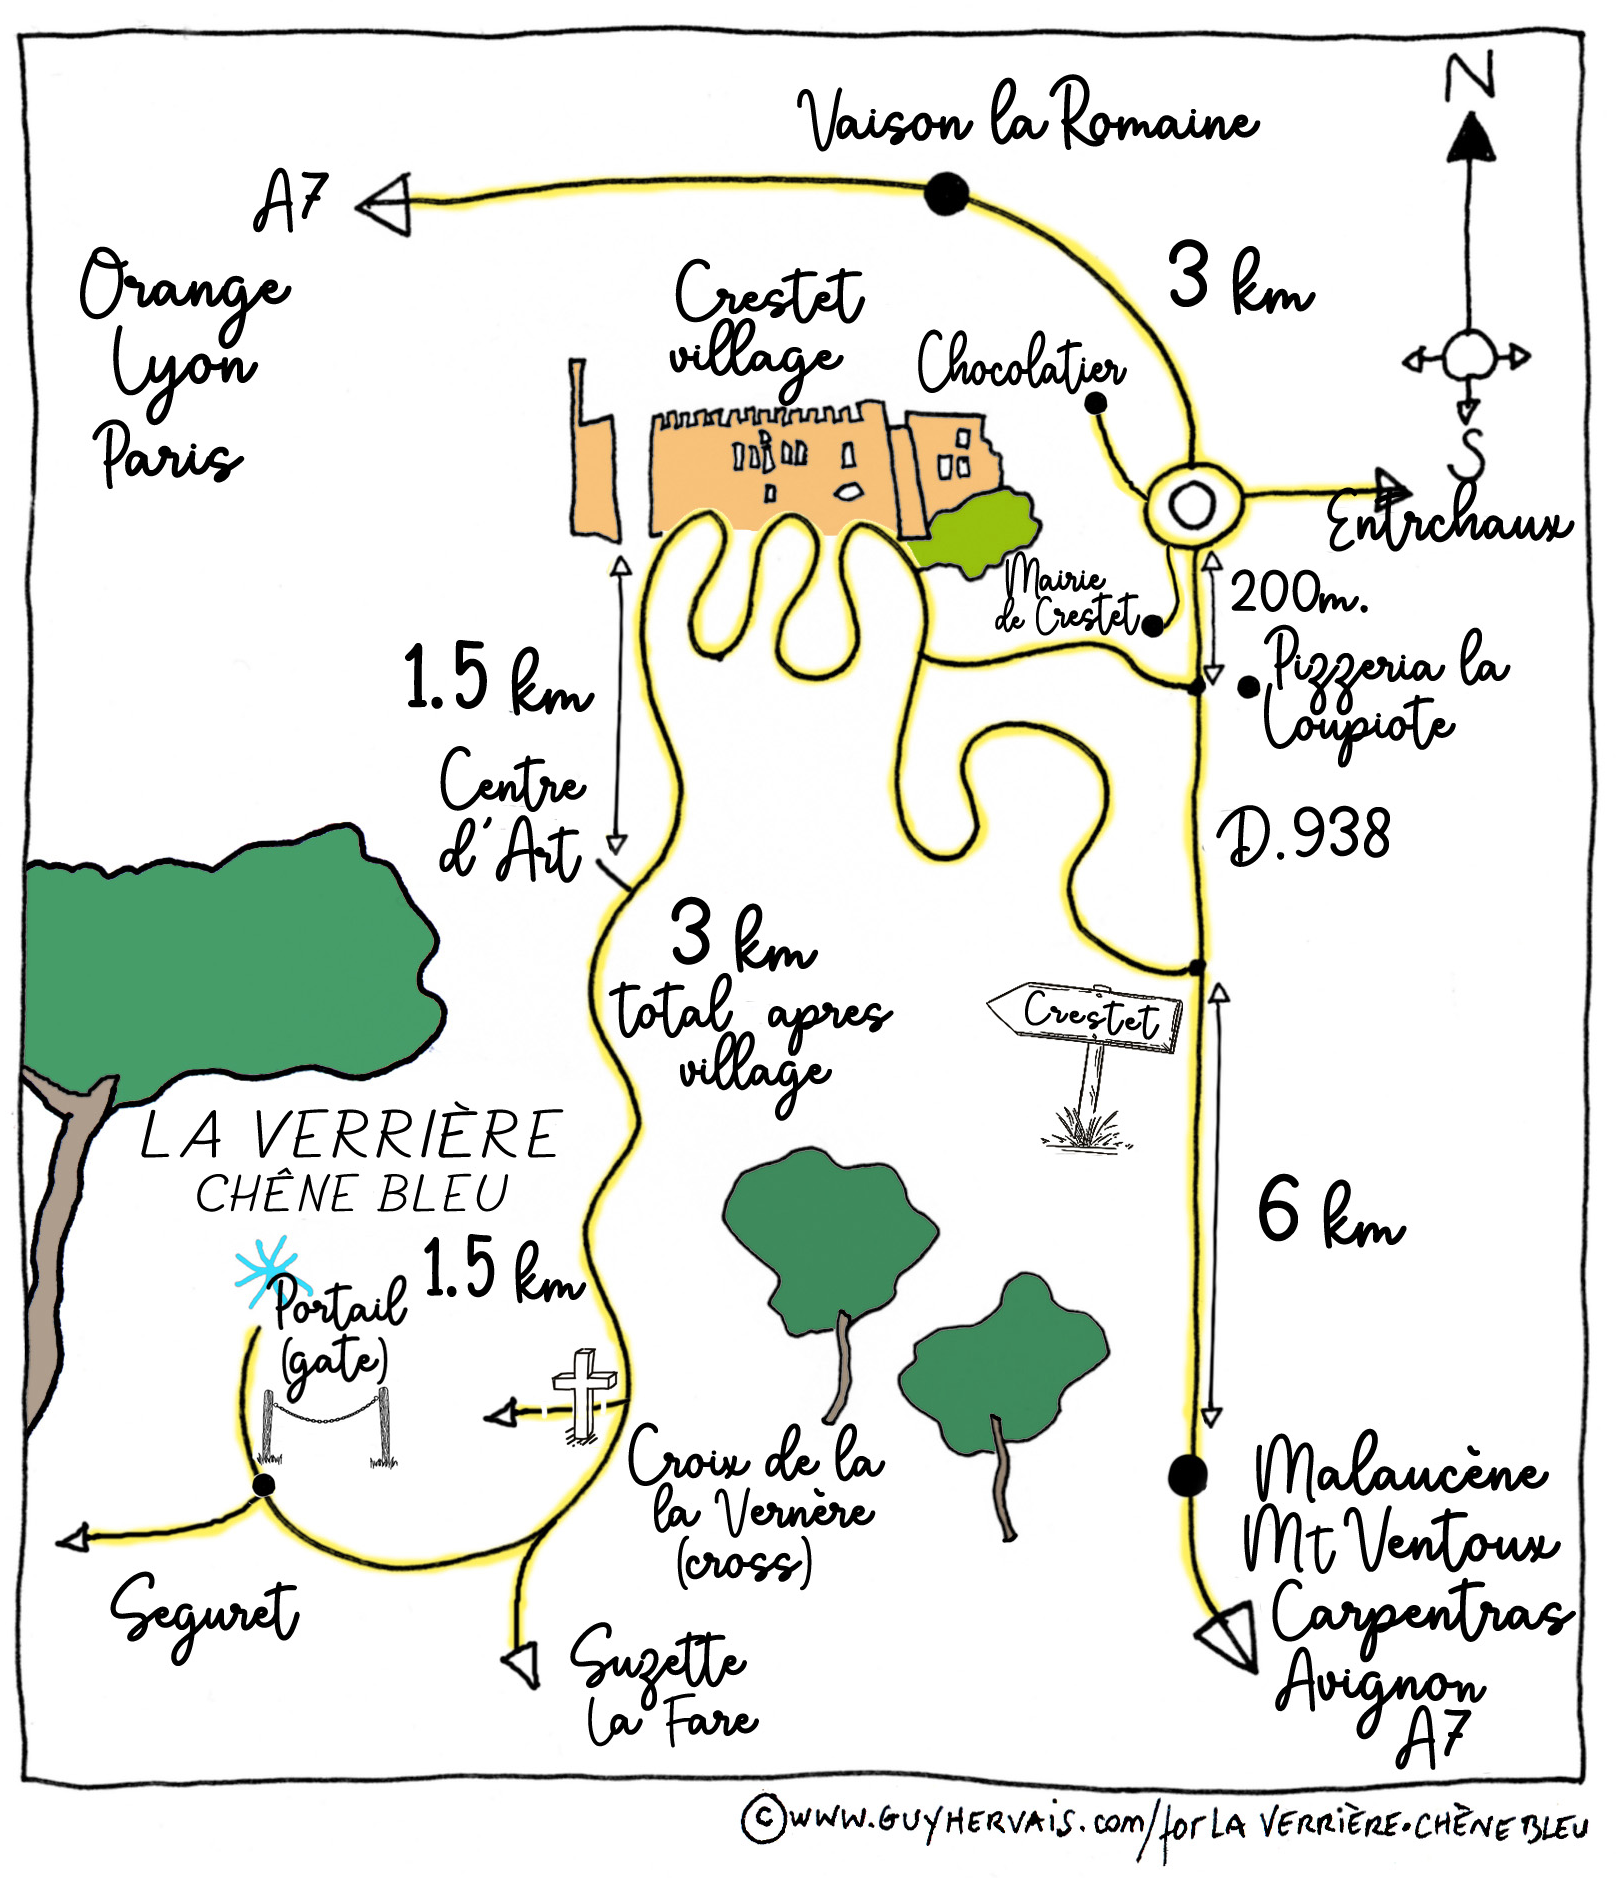 N
Vaison la Romaine
A7
Orange
Lyon
Paris
3 km
Crestet
village
Chocolatier
S
Entrchaux
Mairie
de Crestet
200m.
Pizzeria la
Loupiote
1.5 km
Centre
d'Art
D.938
3 km
total apres
village
Crestet
LA VERRIÈRE
CHÊNE BLEU
6 km
1.5 km
Portail
(gate)
Croix de la
la Vernère
(cross)
Malaucène
Mt Ventoux
Carpentras
Avignon
A7
Seguret
Suzette
la Fare
©www.GUYHERVAIS.com/for LA VERRIÈRE•CHÈNE BLEU